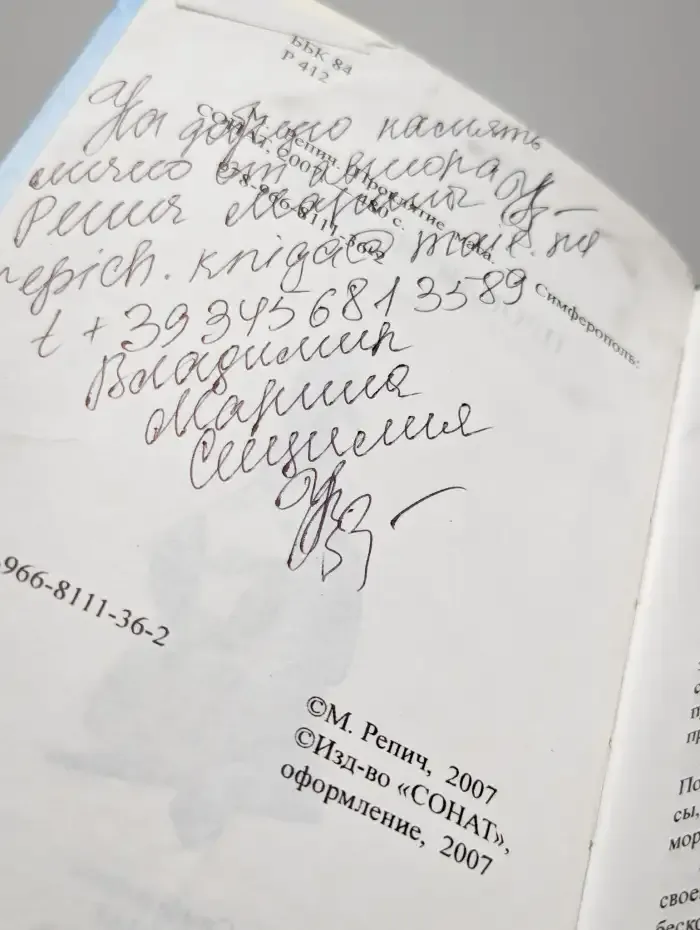 ББК 84
Р 412
На добрую память
лично от автора
Репич Марины
repich.kniga@
t + 393456813589
Владимир
Марина
Сицилия
Симферополь:
966-8111-36-2
©М. Репич, 2007
©Изд-во «СОНАТ»,
оформление, 2007
По
сы,
мор
свое
беско